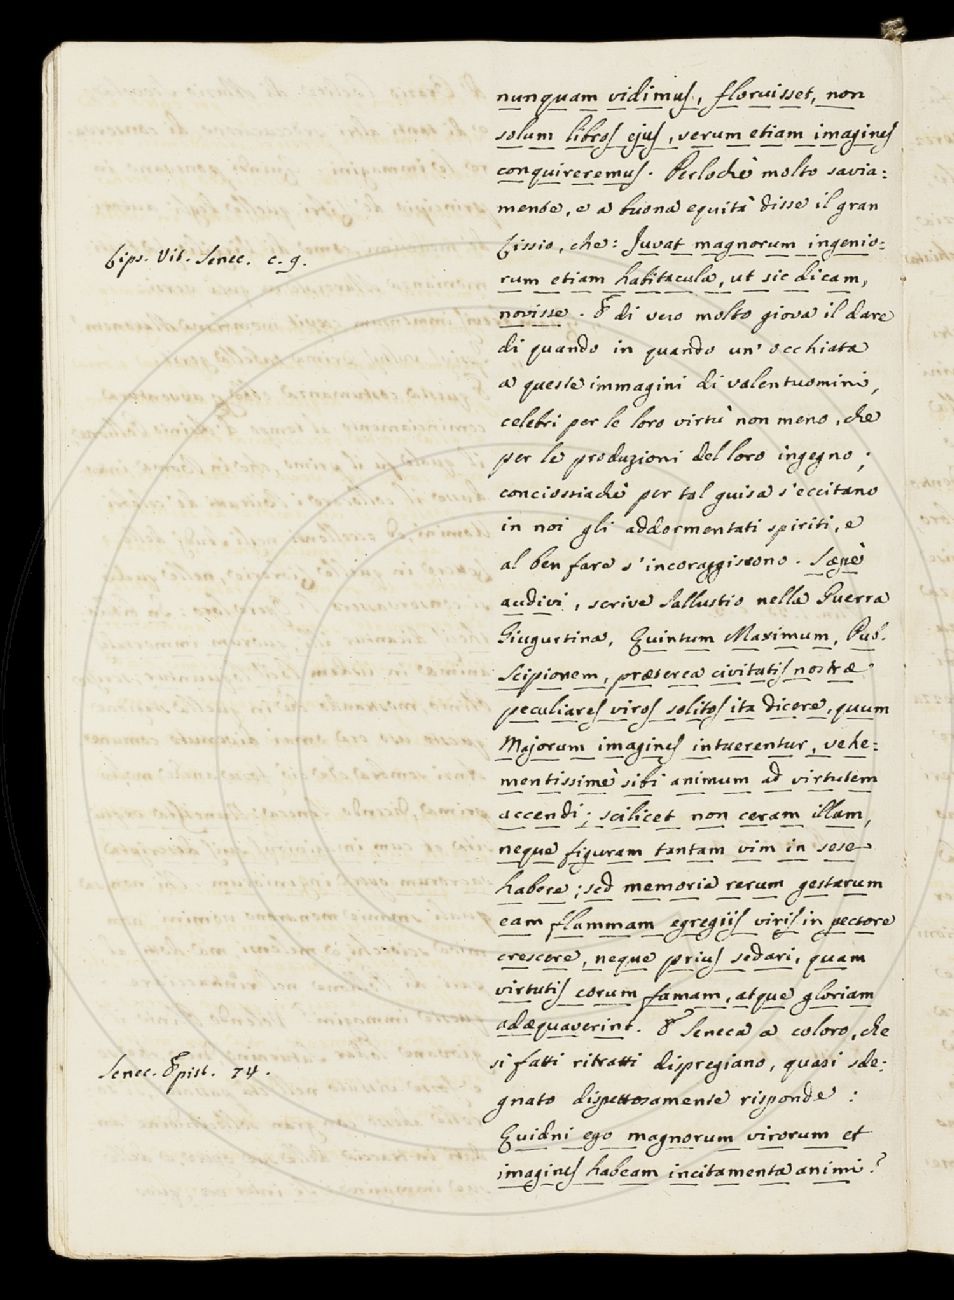 nunquam vidimus, floruisset, non
solum libros ejus, verum etiam imagines
conquireremus. Perlochè molto savia=
mente, e a buona equità disse il gran
Lissio, che: Juvat magnorum ingenio=
Lips. Vit. Senec. c. 9.
rum etiam habitacula, ut sic dicam,
novisse. E di vero molto giova il dare
di quando in quando un' occhiata
a queste immagini di valentuomini,
celebri per le loro virtù non meno, che
per le produzioni del loro ingegno;
conciossiachè per tal guisa s'eccitano
in noi gli addormentati spiriti, e
al ben fare s'incoraggiscono. Sæpè
audivi, scrive Sallustio nella Guerra
Giugurtina, Quintum Maximum, Pub.
Scipionem, præterea civitatis nostræ
peculiares viros solitos ita dicere, quum
Majorum imagines intuerentur, vehe=
mentissimè sibi animum ad virtutem
accendi; scilicet non ceram illam,
neque figuram tantam vim in sese
habere; sed memoria rerum gestarum
eam flammam egregiis viris in pectore
crescere, neque prius sedari, quam
virtutis eorum famam, atque gloriam
adæquaverint. E Seneca a coloro, che
si fatti ritratti dispregiano, quasi sde=
Senec. Epist. 74.
gnato dispettosamente risponde:
Quidni ego magnorum virorum et
imagines habeam incitamenta animi?